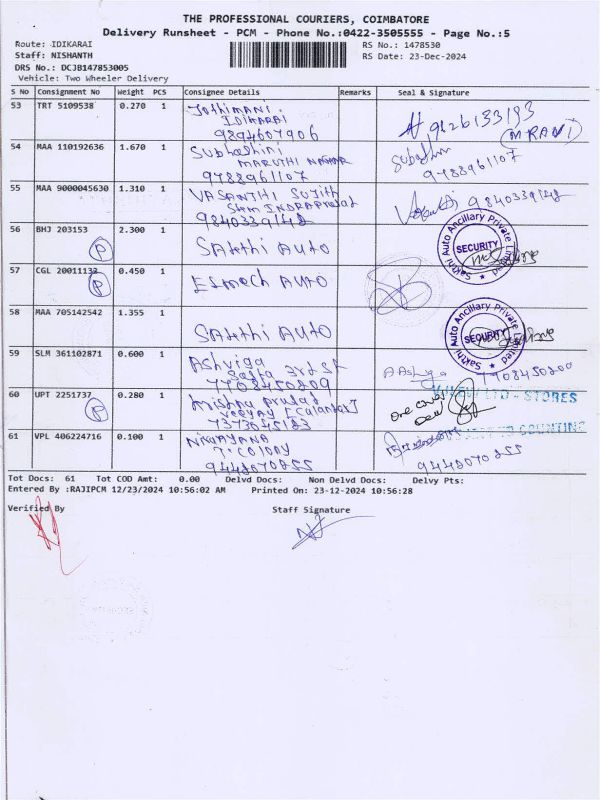 THE PROFESSIONAL COURIERS, COIMBATORE
Delivery Runsheet - PCM - Phone No.:0422-3505555 - Page No.:5
Route: IDIKARAI RS No.: 1478530
Staff: NISHANTH RS Date: 23-Dec-2024
DRS No.: DCJB147853005
Vehicle: Two Wheeler Delivery
S No Consignment No Weight PCS Consignee Details Remarks Seal & Signature
53 TRT 5109538 0.270 1 Jothimani.
IDIKARAI
9894607906 9426133193
(M RAVI)
54 MAA 110192636 1.670 1 Subhashini
MARUTHI NAGAR
9788961107 9788961107
55 MAA 9000045630 1.310 1 VASANTHI SUJITH
9840339148 9840339148
56 BHJ 203153 2.300 1
P SAKTHI AUTO
Sakthi Auto Ancillary Private Limited
SECURITY
57 CGL 20011132 0.450 1
P ESMECH AUTO
58 MAA 705142542 1.355 1
SAKTHI AUTO
Sakthi Auto Ancillary Private Limited
59 SLM 361102871 0.600 1 Ashviga
3rd St
7708450209
60 UPT 2251737 0.280 1
P 7373045183
STORES
COUNTING
61 VPL 406224716 0.100 1 NIRAYANA
COLONY
Tot Docs: 61 Tot COD Amt: 0.00 Delvd Docs: Non Delvd Docs: Delvy Pts:
Entered By :RAJIPCM 12/23/2024 10:56:02 AM Printed On: 23-12-2024 10:56:28
Verified By Staff Signature